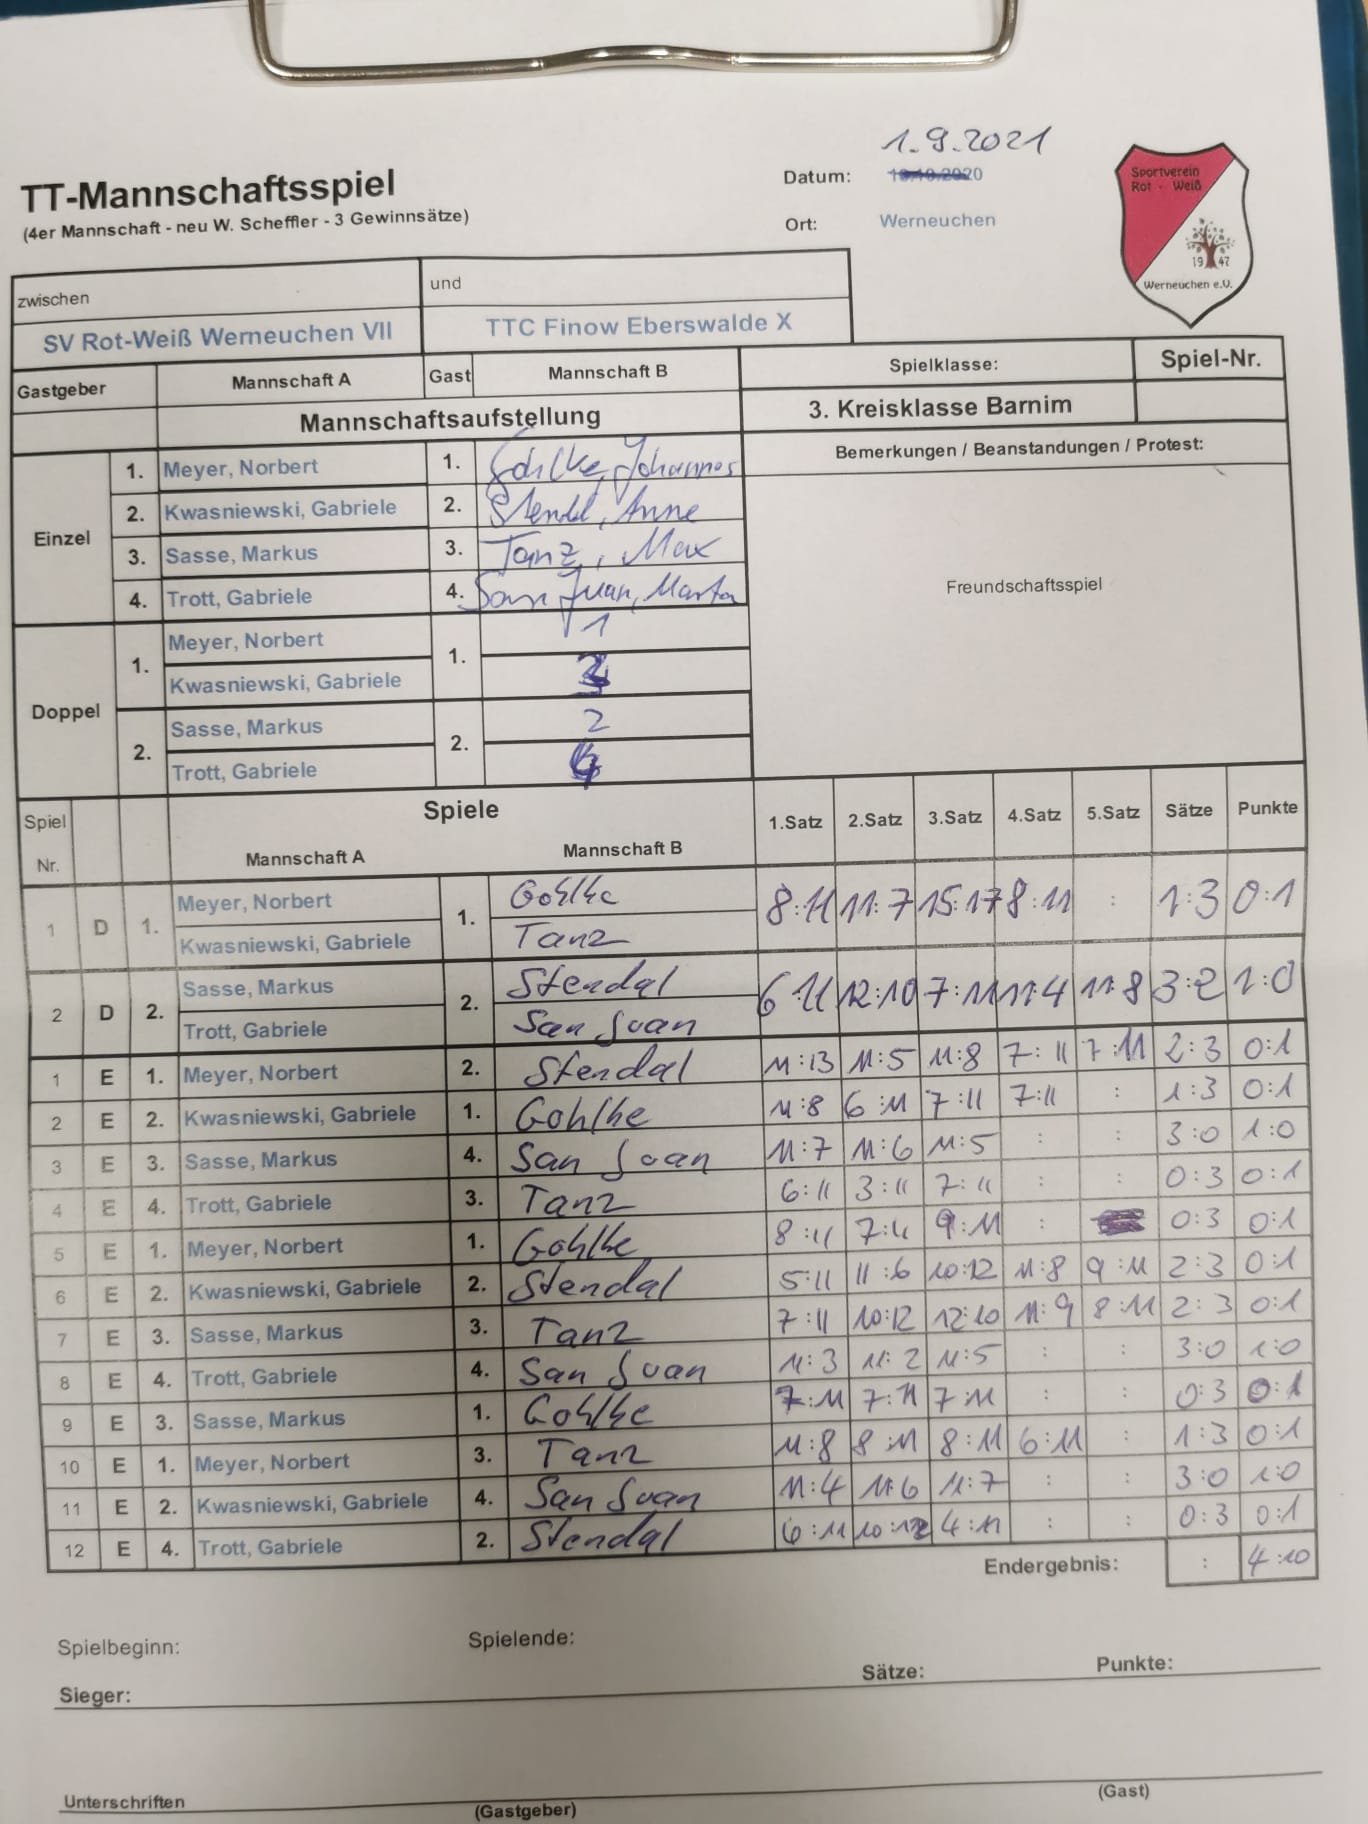 1.9.2021
TT-Mannschaftsspiel
Datum:
(4er Mannschaft - neu W. Scheffler - 3 Gewinnsätze)
Ort: Werneuchen
Sportverein
Rot - Weiß
19 47
Werneuchen e.V.
zwischen und
SV Rot-Weiß Werneuchen VII TTC Finow Eberswalde X
Gastgeber Mannschaft A Gast Mannschaft B Spielklasse: Spiel-Nr.
Mannschaftsaufstellung 3. Kreisklasse Barnim
Bemerkungen / Beanstandungen / Protest:
Einzel
1. Meyer, Norbert 1. Gohlke, Johannes
2. Kwasniewski, Gabriele 2. Stendal, Anne
3. Sasse, Markus 3. Tanz, Max
4. Trott, Gabriele 4. San Juan, Marta
Freundschaftsspiel
Doppel
1. Meyer, Norbert 1. 1
Kwasniewski, Gabriele 3
2. Sasse, Markus 2. 2
Trott, Gabriele 4
Spiel Nr. Spiele 1.Satz 2.Satz 3.Satz 4.Satz 5.Satz Sätze Punkte
Mannschaft A Mannschaft B
1 D 1. Meyer, Norbert 1. Gohlke 8:11 11:7 15:17 8:11 : 1:3 0:1
Kwasniewski, Gabriele Tanz
2 D 2. Sasse, Markus 2. Stendal 6:11 12:10 7:11 11:4 11:8 3:2 1:0
Trott, Gabriele San Juan
1 E 1. Meyer, Norbert 2. Stendal 11:13 11:5 11:8 7:11 7:11 2:3 0:1
2 E 2. Kwasniewski, Gabriele 1. Gohlke 11:8 6:11 7:11 7:11 : 1:3 0:1
3 E 3. Sasse, Markus 4. San Juan 11:7 11:6 11:5 : : 3:0 1:0
4 E 4. Trott, Gabriele 3. Tanz 6:11 3:11 7:11 : : 0:3 0:1
5 E 1. Meyer, Norbert 1. Gohlke 8:11 7:11 9:11 : 0:3 0:1
6 E 2. Kwasniewski, Gabriele 2. Stendal 5:11 11:6 10:12 11:8 9:11 2:3 0:1
7 E 3. Sasse, Markus 3. Tanz 7:11 10:12 12:10 11:9 8:11 2:3 0:1
8 E 4. Trott, Gabriele 4. San Juan 11:3 11:2 11:5 : : 3:0 1:0
9 E 3. Sasse, Markus 1. Gohlke 7:11 7:11 7:11 : : 0:3 0:1
10 E 1. Meyer, Norbert 3. Tanz 11:8 8:11 8:11 6:11 : 1:3 0:1
11 E 2. Kwasniewski, Gabriele 4. San Juan 11:4 11:6 11:7 : : 3:0 1:0
12 E 4. Trott, Gabriele 2. Stendal 6:11 10:12 4:11 : : 0:3 0:1
Endergebnis: : 4:10
Spielbeginn: Spielende:
Sieger: Sätze: Punkte:
Unterschriften (Gastgeber) (Gast)